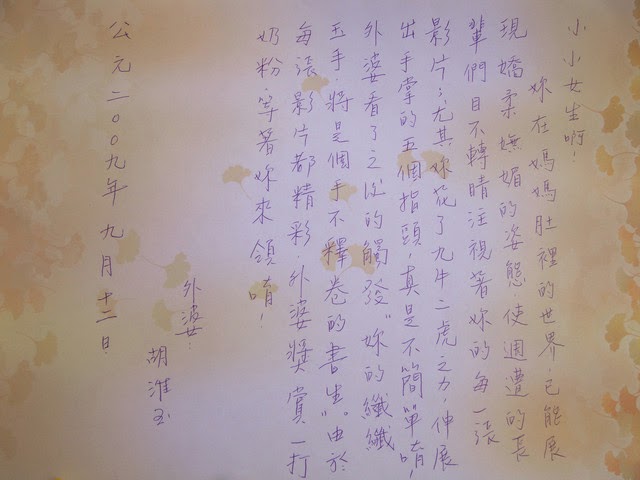 小小女生啊!
妳在媽媽肚裡的世界,已能展
現嬌柔嫵媚的姿態.使週遭的長
輩們目不轉睛注視著妳的每一張
影片;尤其妳花了九牛二虎之力,伸展
出手掌的五個指頭,真是不簡單唷!
外婆看了之後的觸發"妳的纖纖
玉手.將是個手不釋卷的書生"由於
每張影片都精彩.外婆獎賞一打
奶粉.等著妳來領唷!
外婆.
胡淮玉
公元二00九年 九月 十二日.